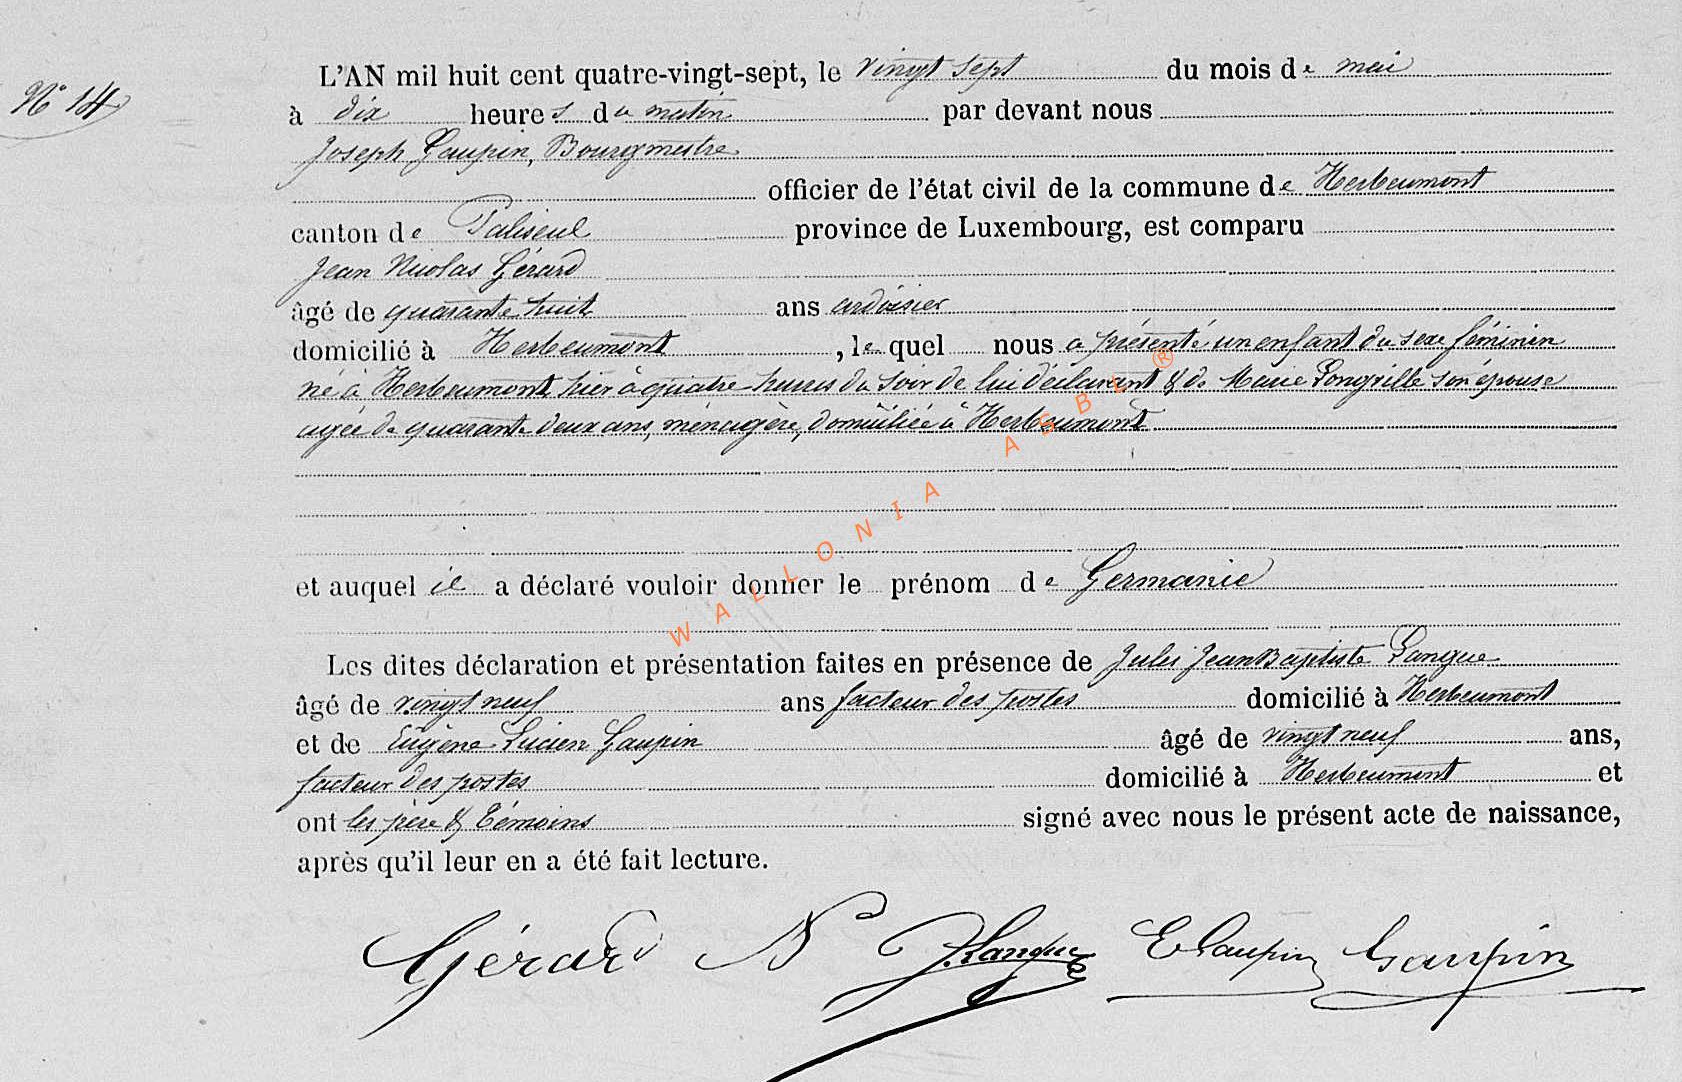 N° 14
L'AN mil huit cent quatre-vingt-sept, le vingt sept du mois de mai
à dix heures du matin par devant nous
Joseph Gaupin, Bourgmestre
officier de l'état civil de la commune de Herbeumont
canton de Paliseul province de Luxembourg, est comparu
Jean Nicolas Gérard
âgé de quarante huit ans ardoisier
domicilié à Herbeumont, lequel nous a présenté un enfant du sexe féminin
né à Herbeumont, hier à quatre heures du soir de lui déclarant & de Marie Longville son épouse
agée de quarante deux ans, ménagère, domiciliée à Herbeumont
et auquel il a déclaré vouloir donner le prénom de Germanie
Les dites déclaration et présentation faites en présence de Jules Jean Baptiste Langue
âgé de vingt neuf ans facteur des postes domicilié à Herbeumont
et de Eugène Lucien Gaupin âgé de vingt neuf ans,
facteur des postes domicilié à Herbeumont et
ont les père & témoins signé avec nous le présent acte de naissance,
après qu'il leur en a été fait lecture.
Gérard N J. Langue E Gaupin Gaupin
WALLONIA ASBL ®